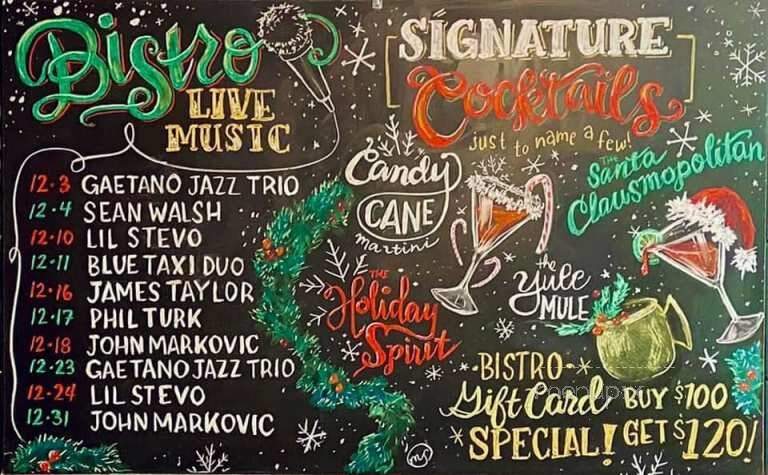 Bistro
LIVE
MUSIC
12·3 GAETANO JAZZ TRIO
12·4 SEAN WALSH
12·10 LIL STEVO
12·11 BLUE TAXI DUO
12·16 JAMES TAYLOR
12·17 PHIL TURK
12·18 JOHN MARKOVIC
12·23 GAETANO JAZZ TRIO
12·24 LIL STEVO
12·31 JOHN MARKOVIC
SIGNATURE
Cocktails
just to name a few!
Candy
CANE
martini
THE
Santa
Clausmopolitan
THE
Holiday
Spirit
the
Yule
MULE
·BISTRO·
Gift Card BUY $100
SPECIAL! GET $120!